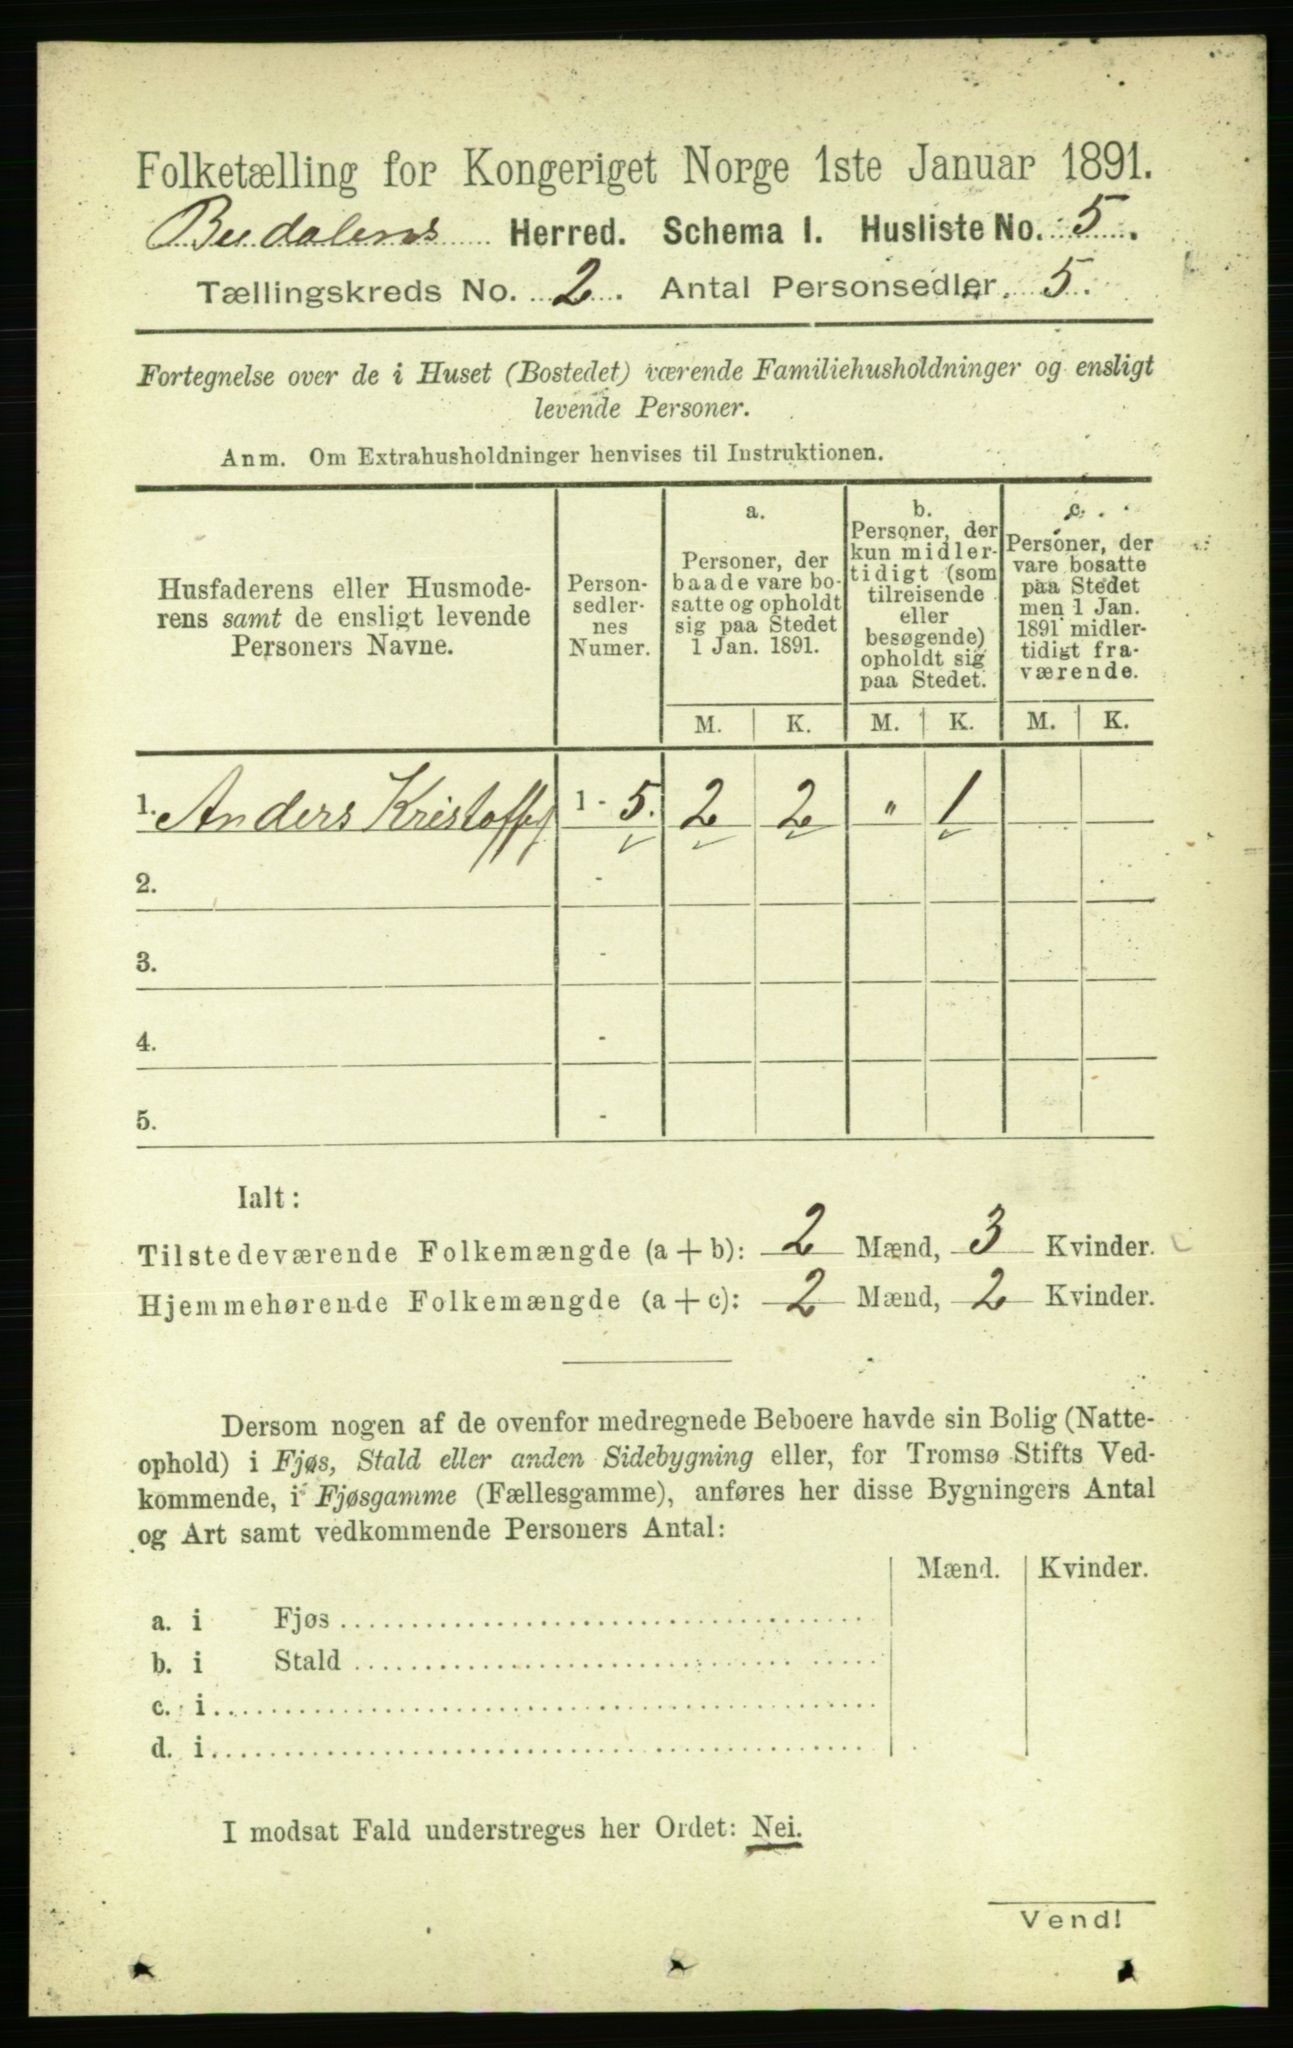 Folketælling for Kongeriget Norge 1ste Januar 1891.
Budalens Herred. Schema I. Husliste No. 5.
Tællingskreds No. 2. Antal Personsedler. 5.
Fortegnelse over de i Huset (Bostedet) værende Familiehusholdninger og ensligt
levende Personer.
Anm. Om Extrahusholdninger henvises til Instruktionen.
Husfaderens eller Husmode-
rens samt de ensligt levende
Personers Navne.
Person-
sedler-
nes
Numer.
a.
Personer, der
baade vare bo-
satte og opholdt
sig paa Stedet
1 Jan. 1891.
b.
Personer, der
kun midler-
tidigt (som
tilreisende
eller
besøgende)
opholdt sig
paa Stedet.
c.
Personer, der
vare bosatte
paa Stedet
men 1 Jan.
1891 midler-
tidigt fra-
værende.
M. K. M. K. M. K.
1. Anders Kristoffs 1 - 5. 2 2 " 1
2. -
3. -
4. -
5. -
Ialt:
Tilstedeværende Folkemængde (a + b): 2 Mænd, 3 Kvinder.
Hjemmehørende Folkemængde (a + c): 2 Mænd, 2 Kvinder.
Dersom nogen af de ovenfor medregnede Beboere havde sin Bolig (Natte-
ophold) i Fjøs, Stald eller anden Sidebygning eller, for Tromsø Stifts Ved-
kommende, i Fjøsgamme (Fællesgamme), anføres her disse Bygningers Antal
og Art samt vedkommende Personers Antal:
Mænd. Kvinder.
a. i Fjøs
b. i Stald
c. i
d. i
I modsat Fald understreges her Ordet: Nei.
Vend!